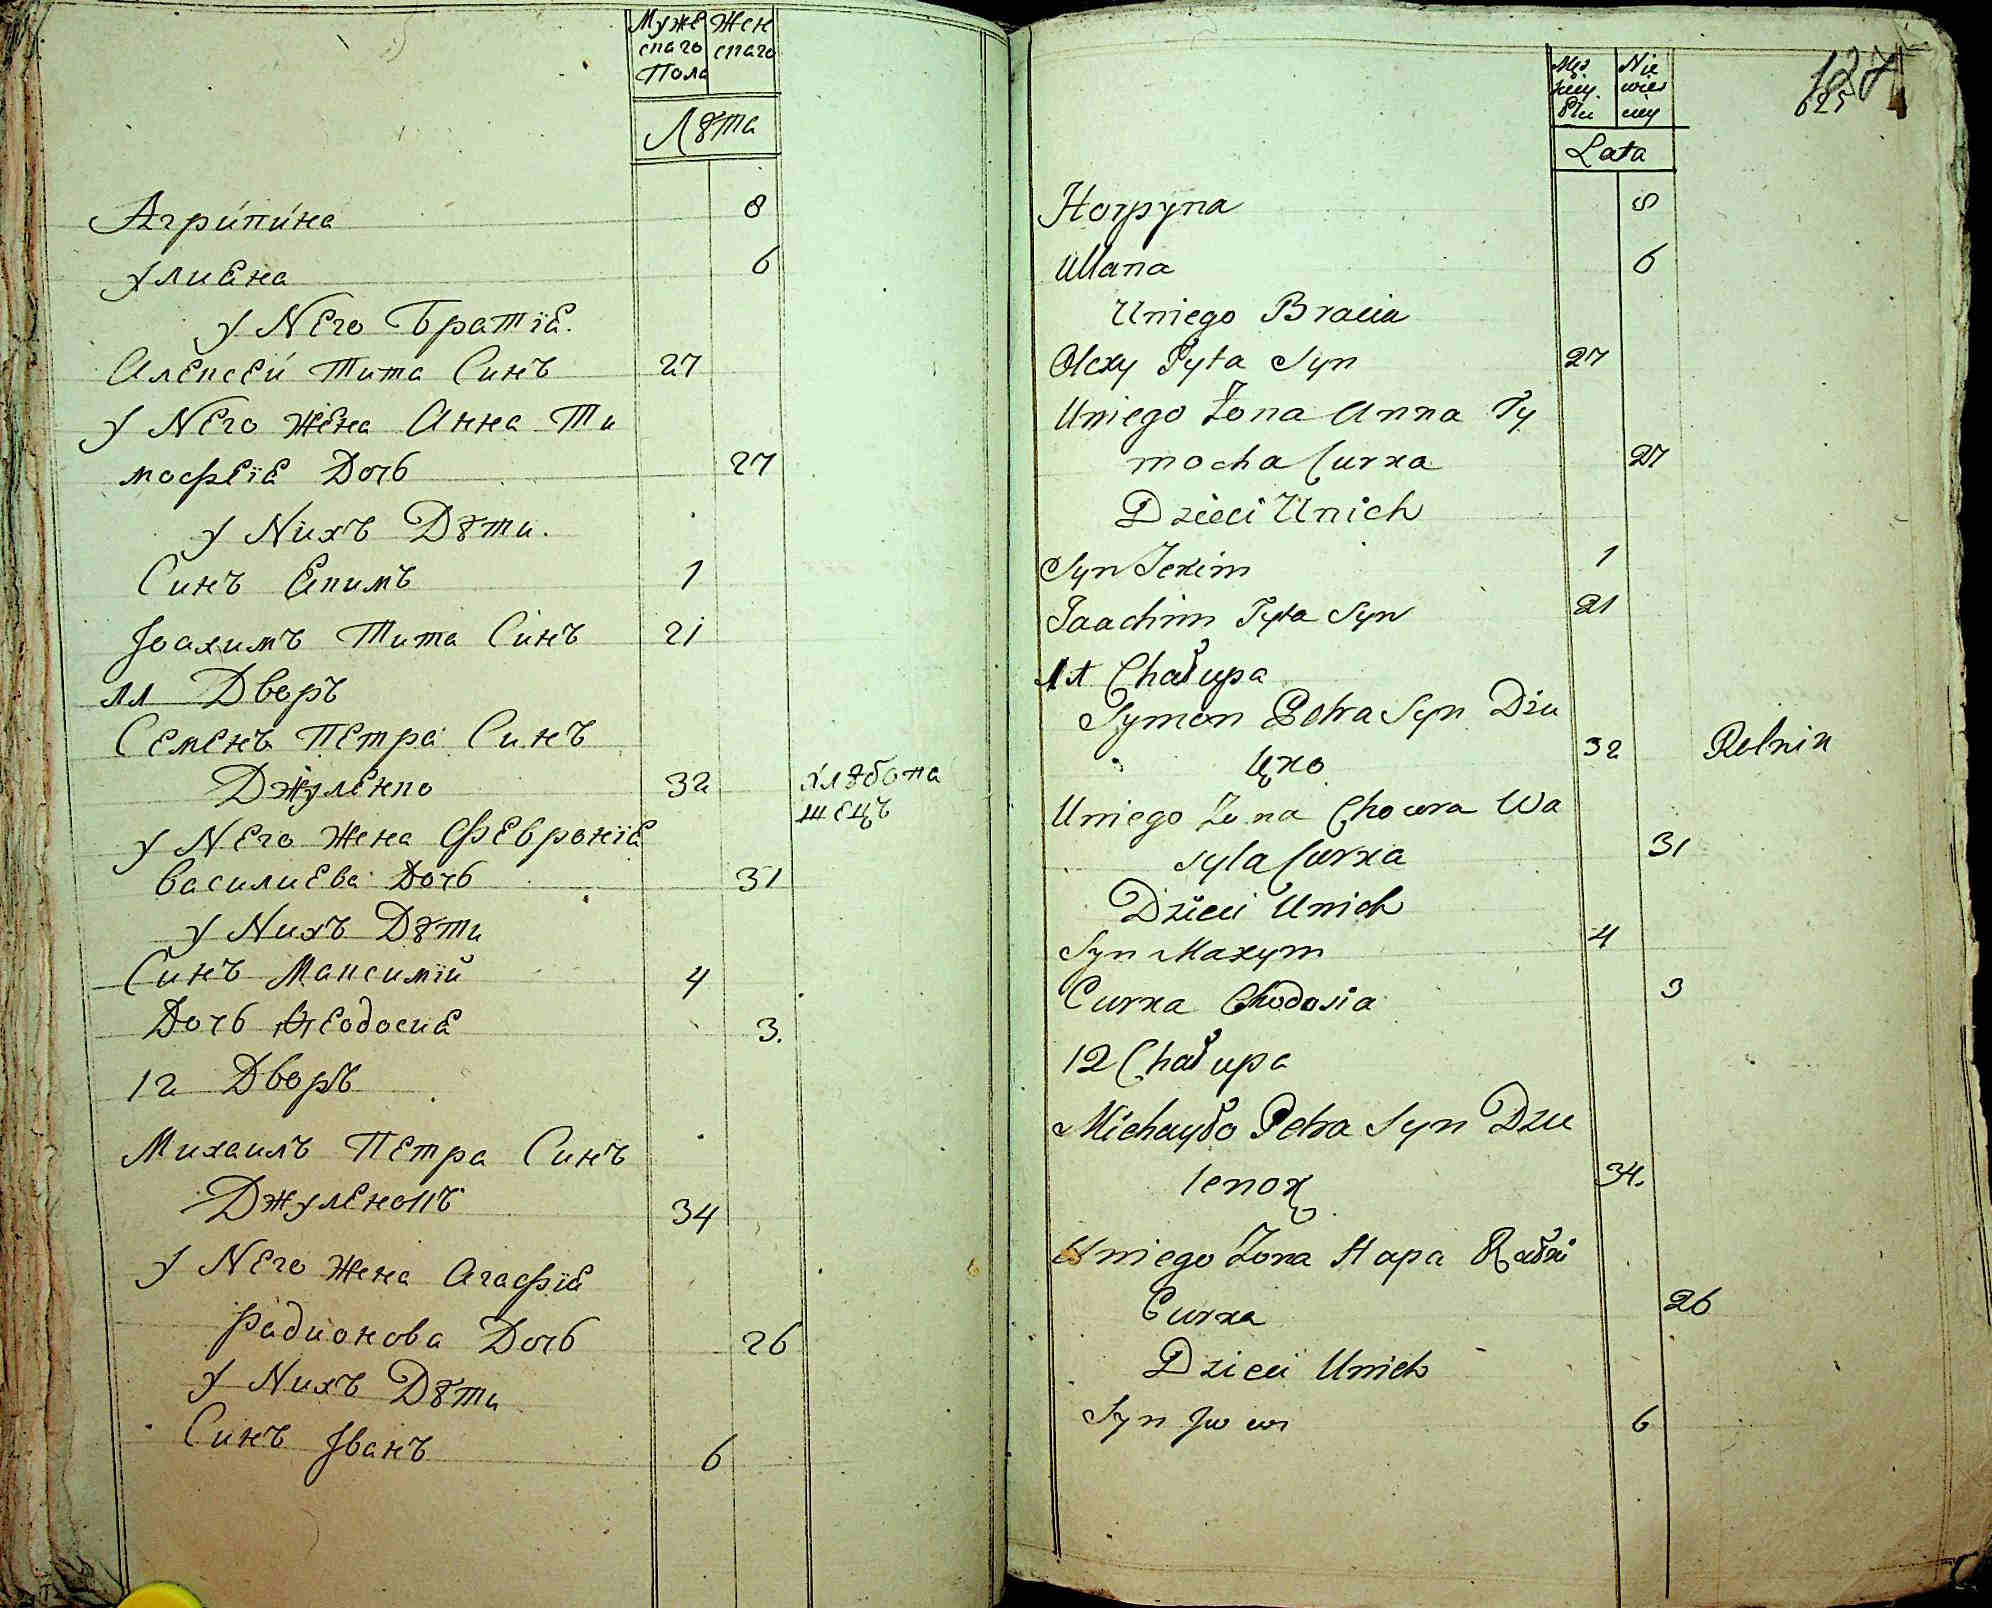 Муже Жен
скаго скаго
Пола
Лѣта
Агрипина 8
Улиана 6
У Него Братїе.
Алексей Тита Синъ 27
У Него Жена Анна Ти
мофеїа Дочь 27
У Нихъ Дѣти.
Синъ Екимъ 1
Іоахимъ Тита Синъ 21
11 Дворъ
Семенъ Петра Синъ
Джуленко 32 хлѣбопа
шецъ
У Него Жена Февронїа
Василиева Дочь 31
У Нихъ Дѣти
Синъ Максимїй 4
Дочь Феодосиа 3.
12 Дворъ
Михаилъ Петра Синъ
Джуленокъ 34
У Него Жена Агафїа
Радионова Дочь 26
У Нихъ Дѣти
Синъ Іванъ 6
Męz Nie
kiey wies
Płci ciey
127
625
Lata
Horpyna 8
Ullana 6
Uniego Bracia
Olexy Tyta Syn 27
Uniego Żona Anna Ty
mocha Curka 27
Dzieci Unich
Syn Jekim 1
Jaachim Tyta Syn 21
11 Chałupa
Symon Petra Syn Dzu
32 Rolnik
Uniego Żona Chowra Wa
syla Curka 31
Dzieci Unich
Syn Maxym 4
Curka Chodosia 3
12 Chałupa
Michayło Petra Syn Dzu
lenok 34.
Uniego Żona Hapa
Curka 26
Dzieci Unich
Syn Iwan 6